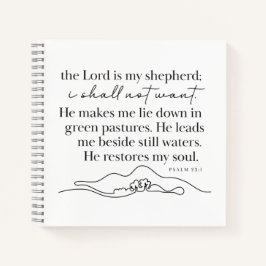 the Lord is my shepherd;
i shall not want.
He makes me lie down in
green pastures. He leads
me beside still waters.
He restores my soul.
PSALM 23:1